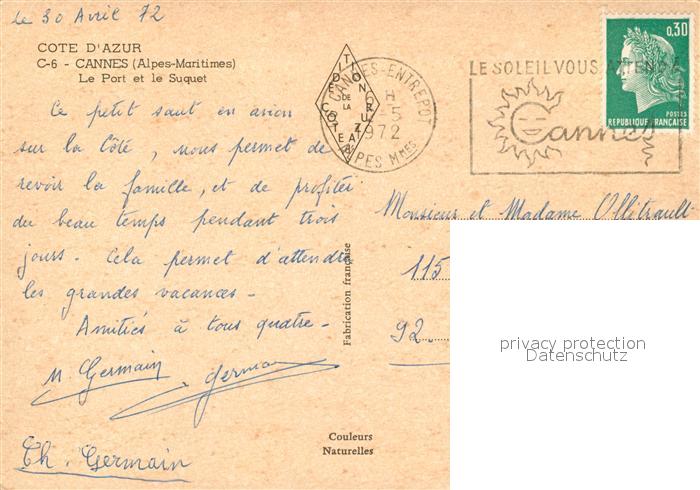 le 30 Avril 72
COTE D'AZUR
C-6 - CANNES (Alpes-Maritimes)
Le Port et le Suquet
Ce petit saut en avion
sur la Côte, nous permet de
revoir la famille, et de profiter
du beau temps pendant trois
jours. Cela permet d'attendre
les grandes vacances -
Amitiés à tous quatre -
M. Germain
Germain
Th. Germain
EDITION DE LA COTE D'AZUR
CANNES-ENTREPOT
6 H
-5
1972
ALPES Mmes
LE SOLEIL VOUS ATTEND A
Cannes
0,30
POSTES
REPUBLIQUE FRANÇAISE
Monsieur et Madame Ollitrault
115
92.
Fabrication française
Couleurs
Naturelles
privacy protection
Datenschutz